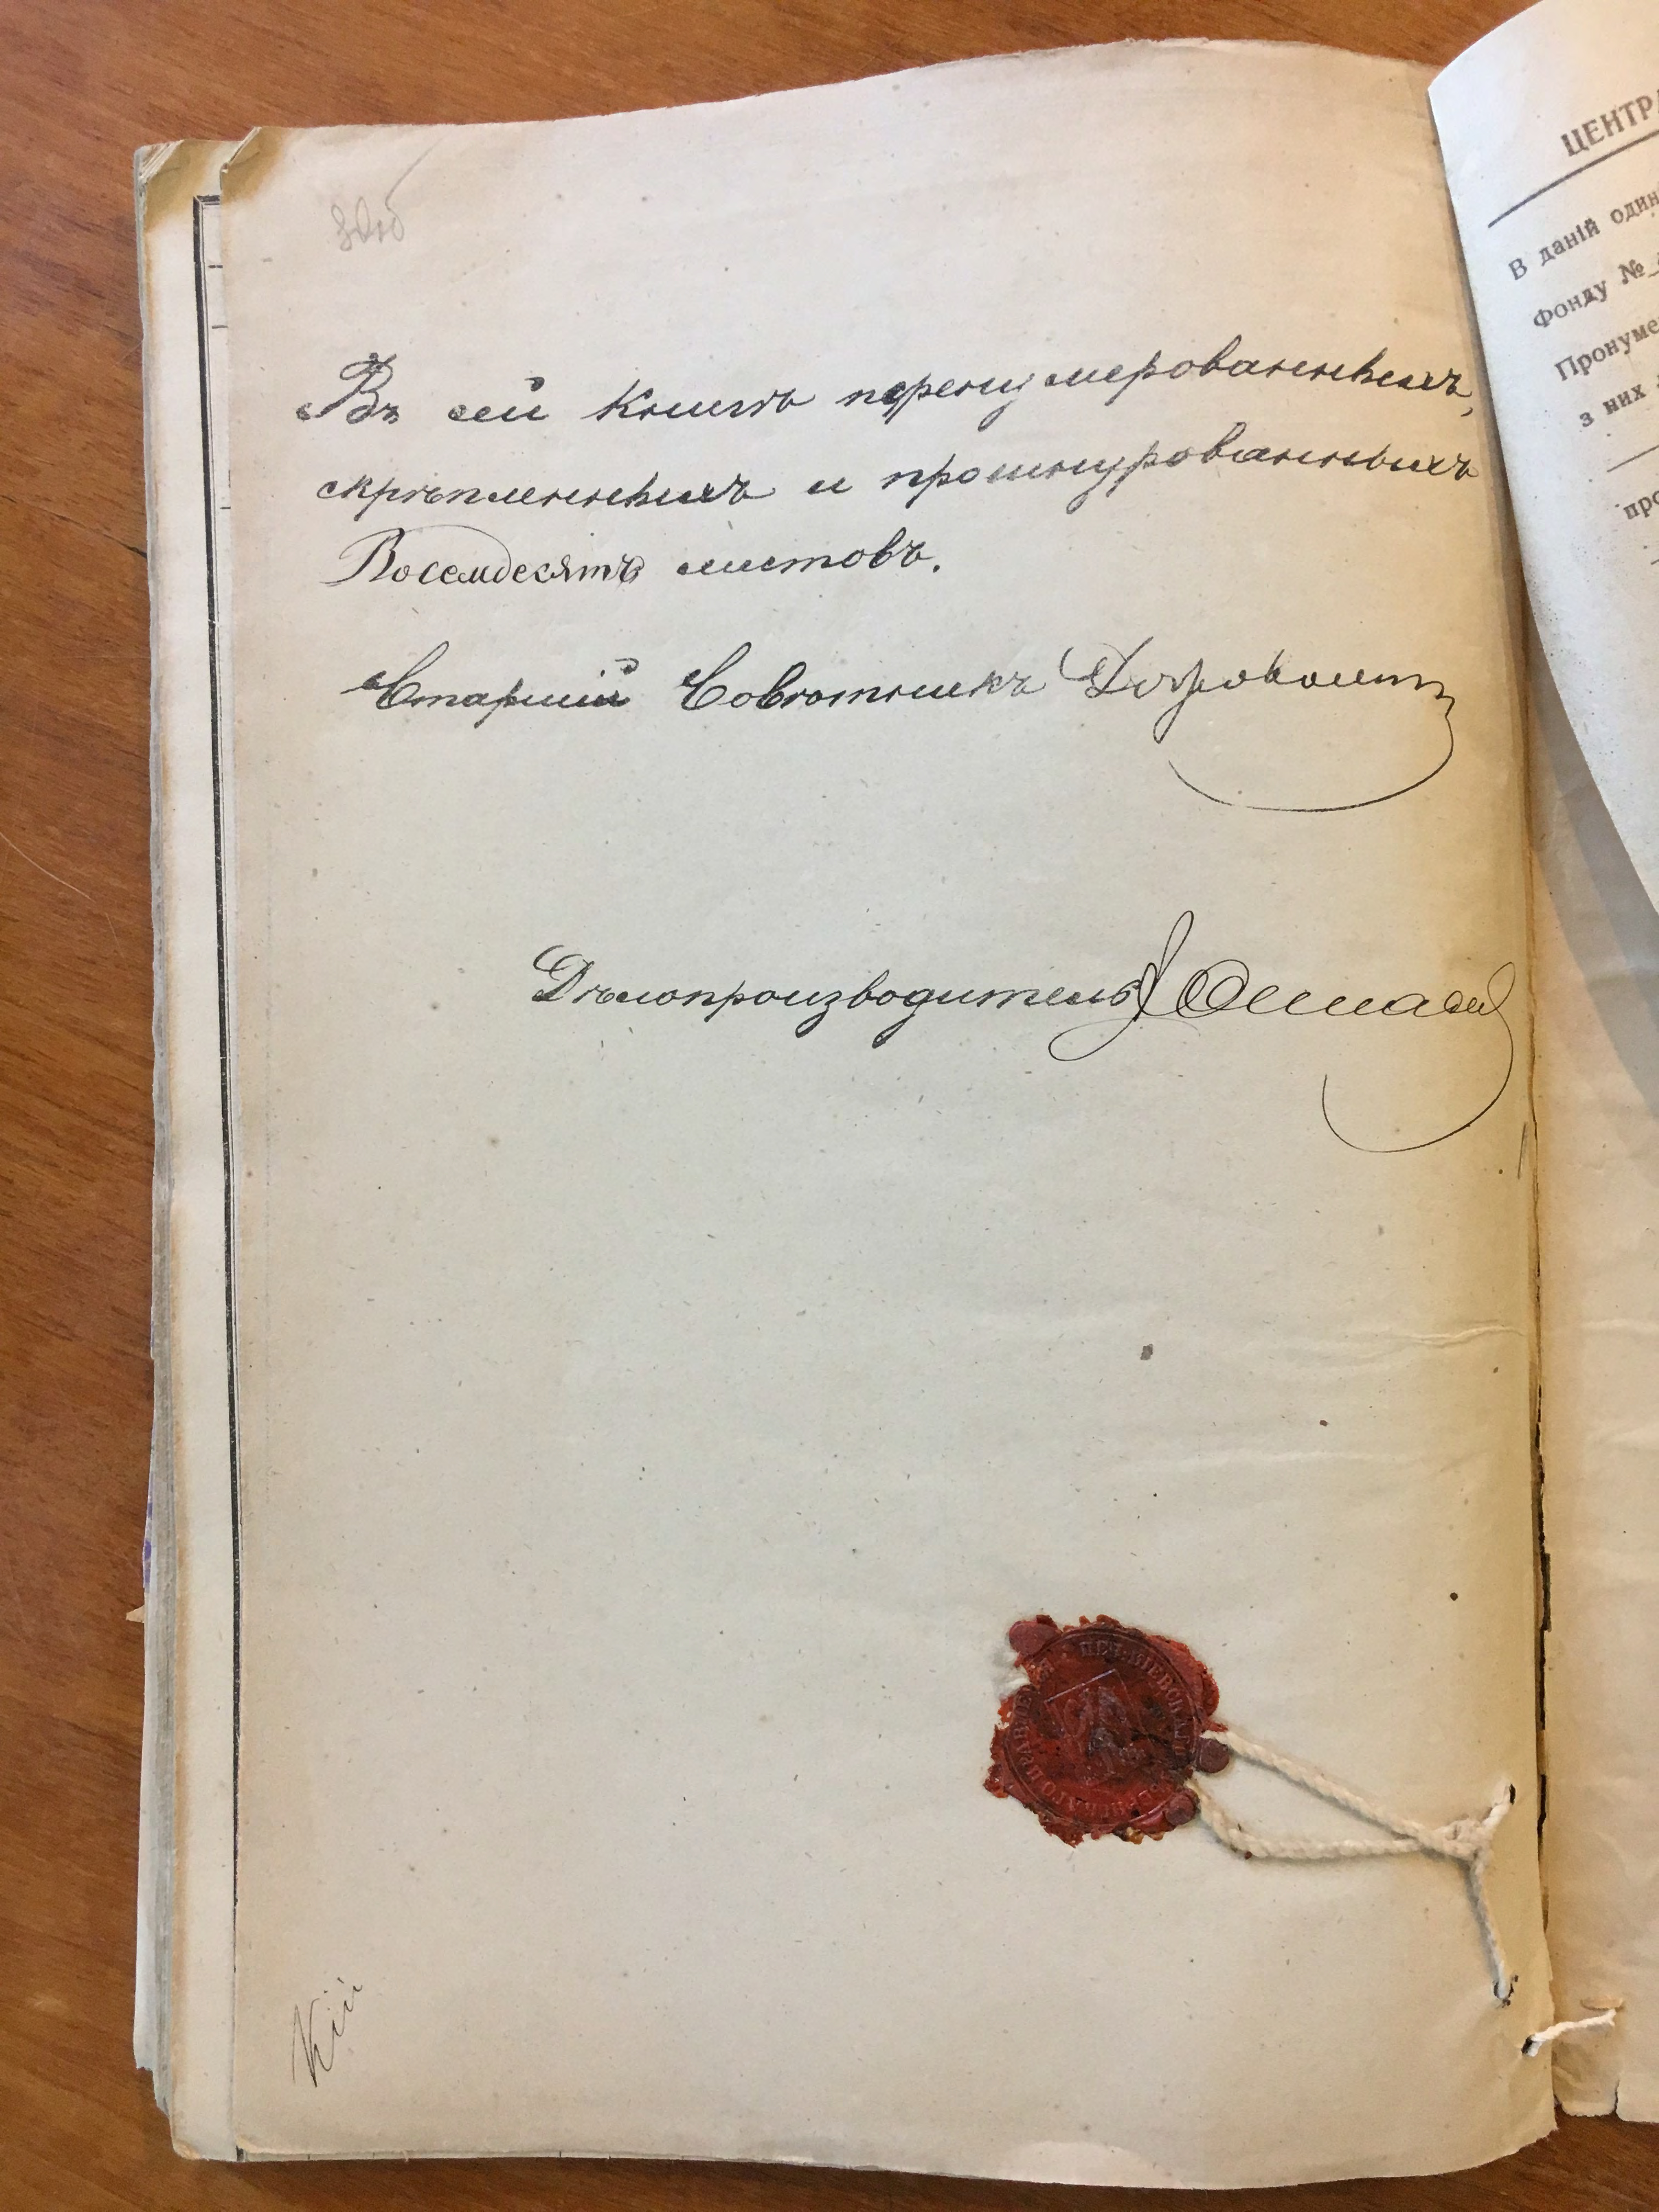 80об
Въ сей книгѣ перенумерованныхъ,
скрѣпленныхъ и прошнурованныхъ
Восемдесятъ листовъ.
Старшій Совѣтникъ
Дѣлопроизводитель
ЦЕНТРА
В даній один
Фонду №
Пронуме
з них
про